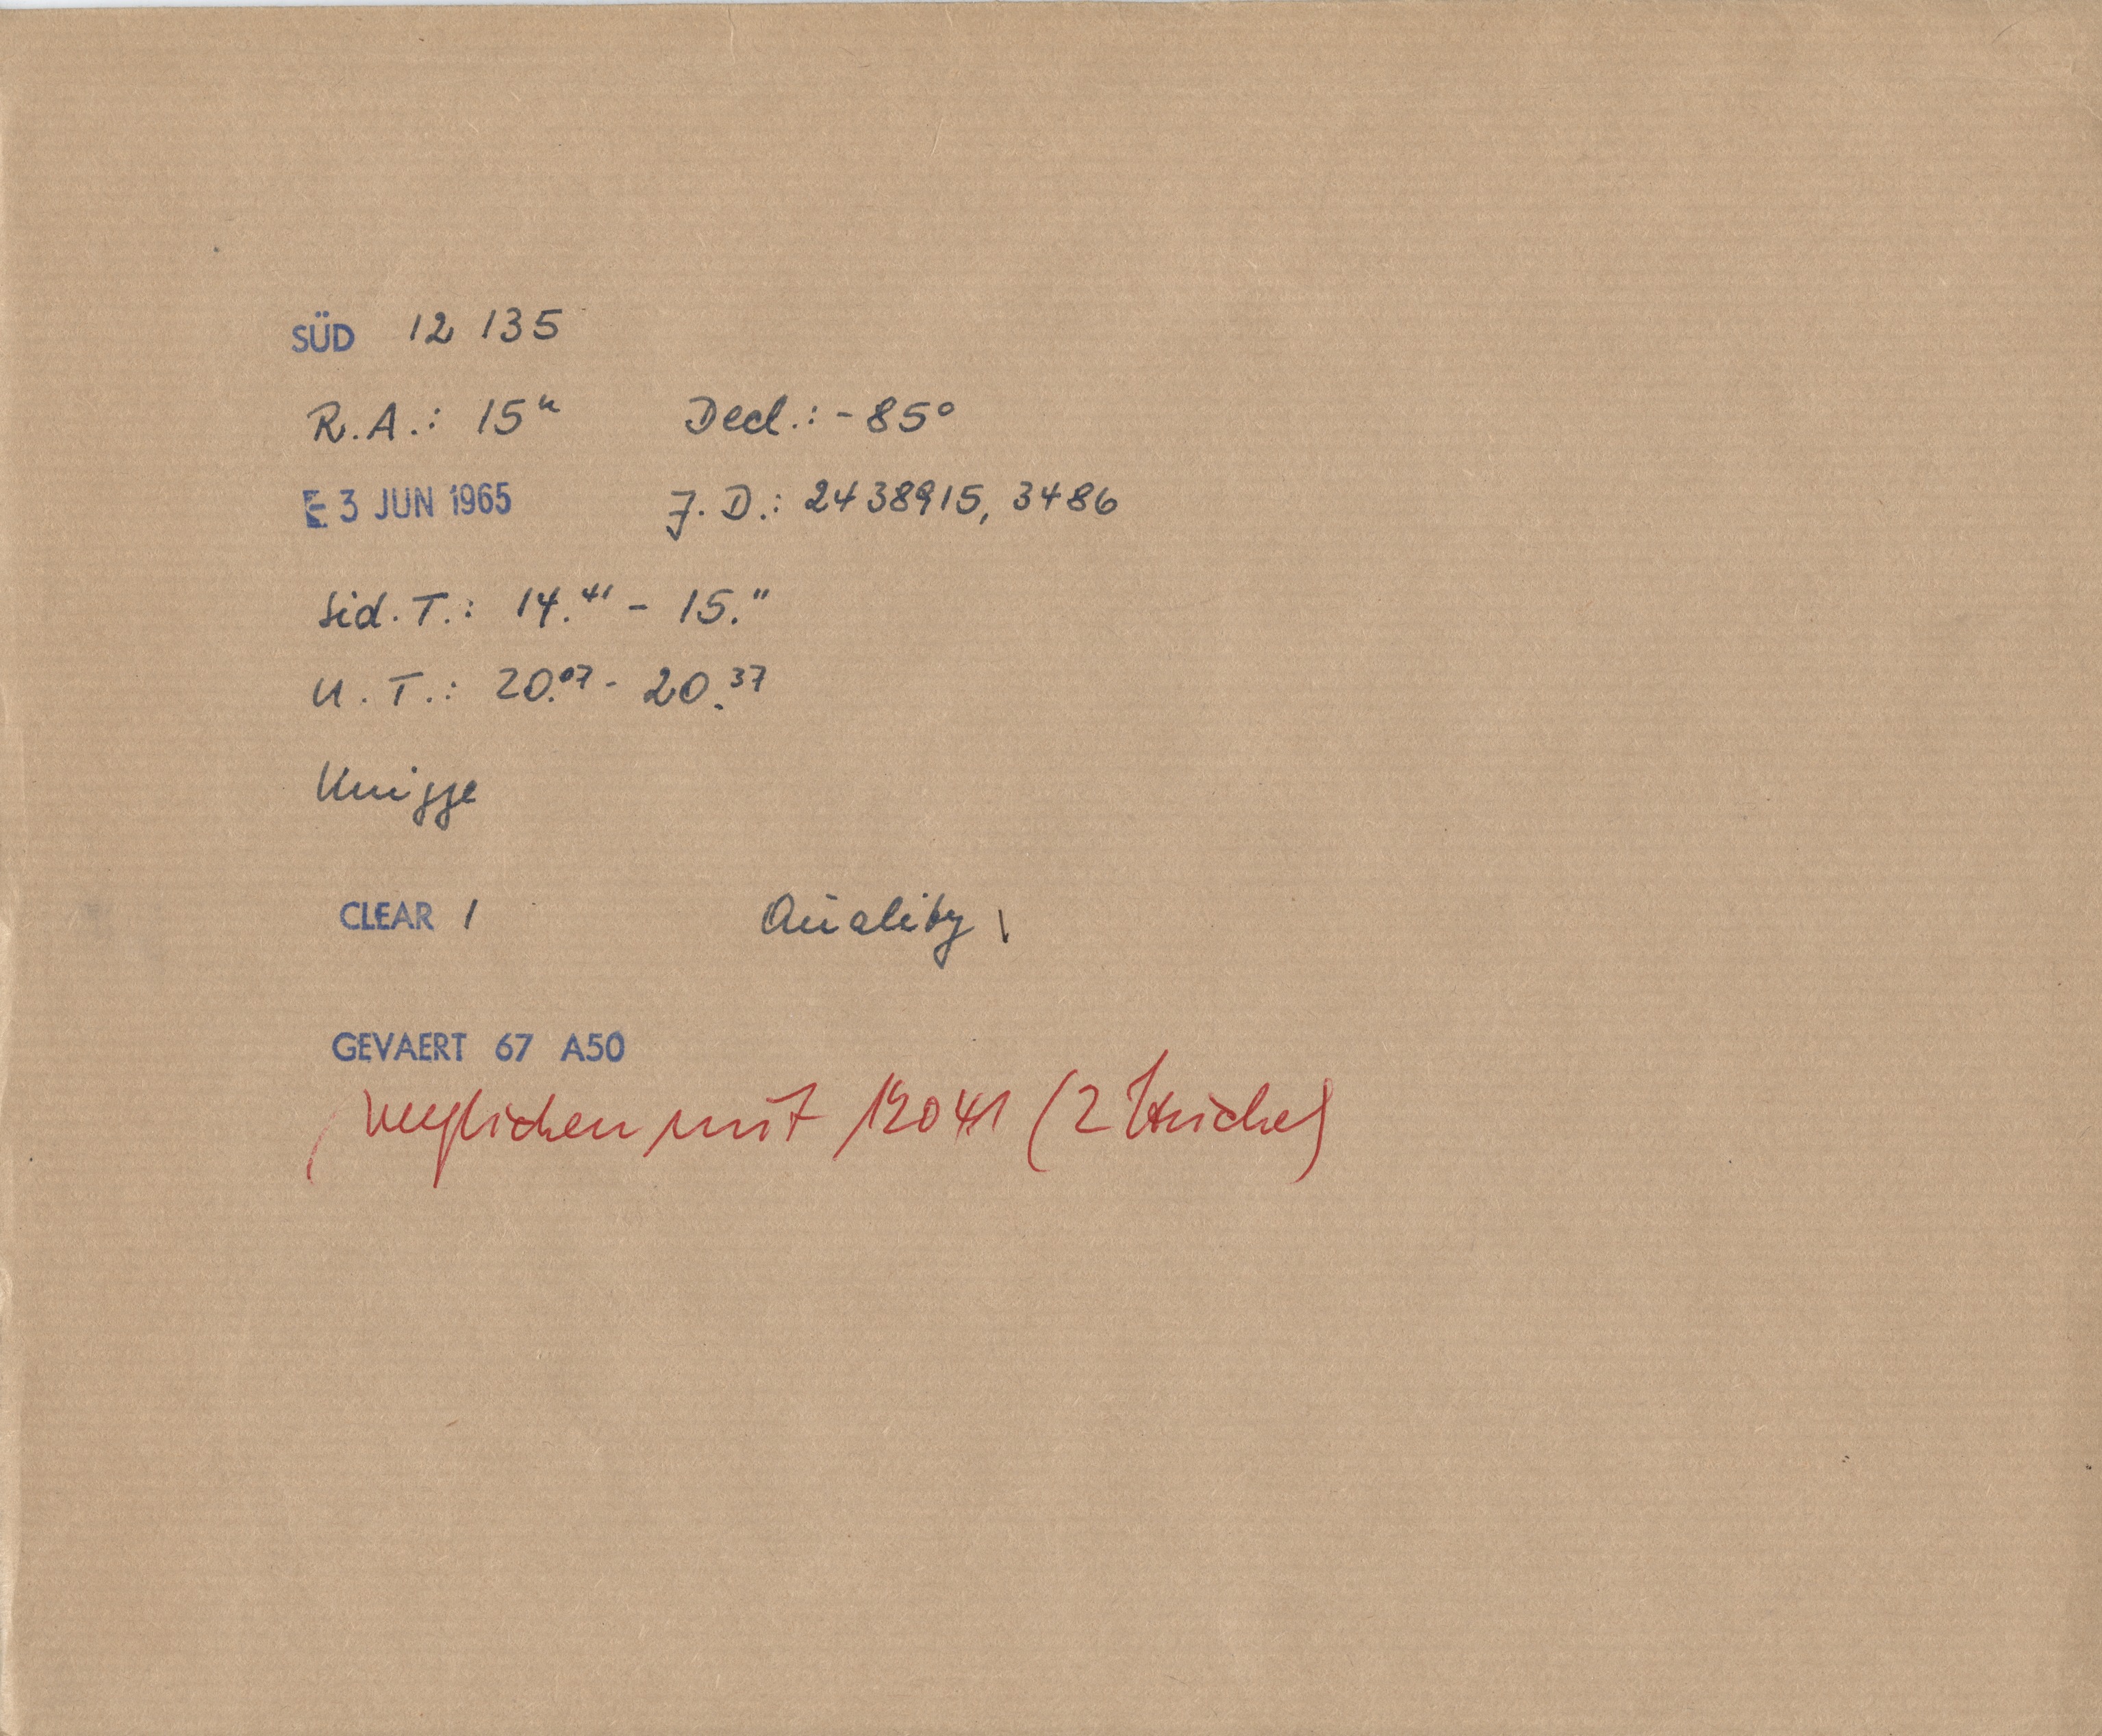 SÜD 12 135
R.A.: 15ʰ Decl.: -85°
E 3 JUN 1965 J.D.: 2438915,3486
Sid.T.: 14.⁴¹ - 15.¹¹
U.T.: 20.⁰⁷ - 20.³⁷
Knigge
CLEAR 1 Quality 1
GEVAERT 67 A50
verglichen mit 12041 (2 Striche)